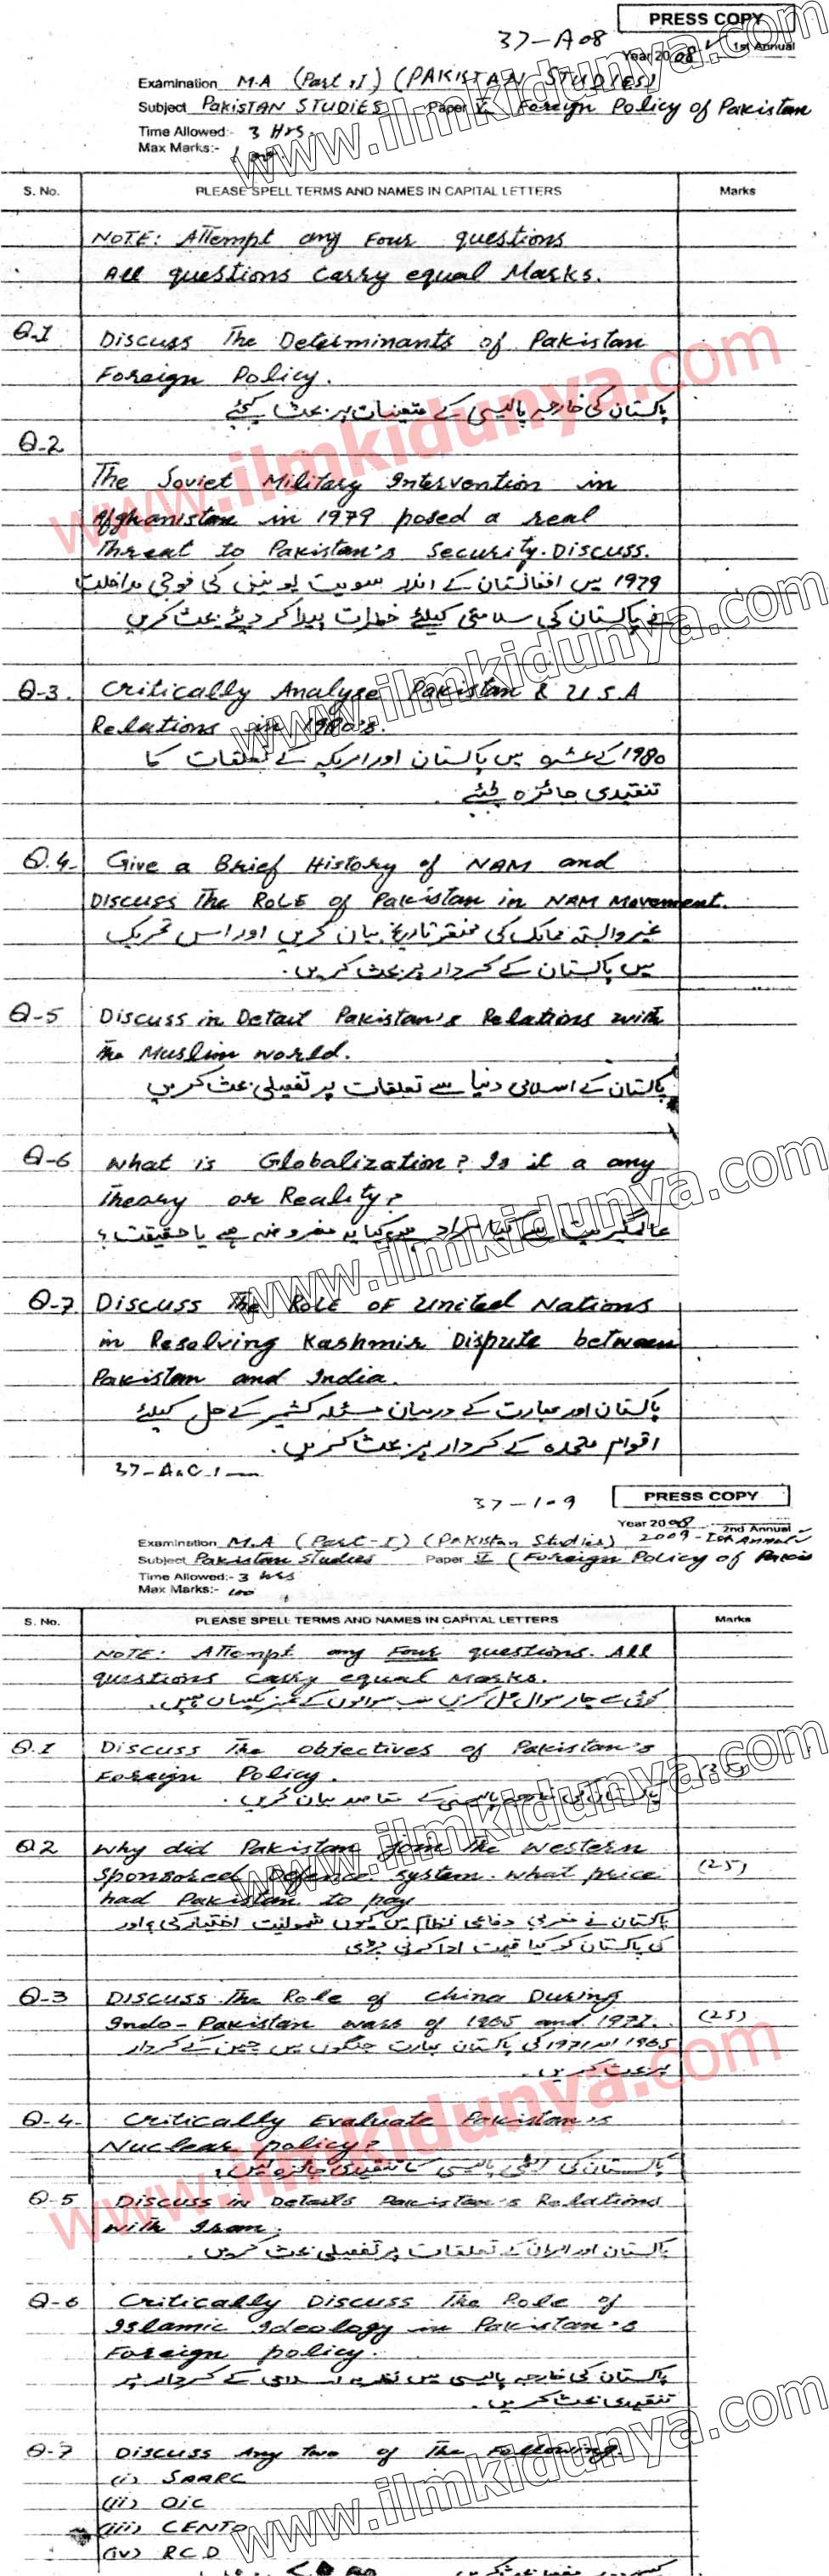 PRESS COPY
37-A08
Year 2008 1st Annual
Examination M.A (Part I) (PAKISTAN STUDIES)
Subject PAKISTAN STUDIES Paper V Foreign Policy of Pakistan
Time Allowed:- 3 Hrs.
Max Marks:-
S. No. PLEASE SPELL TERMS AND NAMES IN CAPITAL LETTERS Marks
NOTE: Attempt any Four questions
All questions Carry equal Marks.
Q-1 Discuss The Determinants of Pakistan
Foreign Policy.
پاکستان کی خارجہ پالیسی کے متعینات پر بحث کیجئے
Q-2
The Soviet Military Intervention in
Afghanistan in 1979 posed a real
Threat to Pakistan's Security. Discuss.
1979 میں افغانستان کے اندر سوویت یونین کی فوجی مداخلت
نے پاکستان کی سلامتی کیلئے خطرات پیدا کر دیئے بحث کریں
Q-3. Critically Analyse Pakistan & U.S.A
Relations in 1980's.
1980 کے عشرہ میں پاکستان اور امریکہ کے تعلقات کا
تنقیدی جائزہ لیجئے.
Q.4- Give a Brief History of NAM and
Discuss The Role of Pakistan in NAM Movement.
غیر وابستہ ممالک کی مختصر تاریخ بیان کریں اور اس تحریک
میں پاکستان کے کردار پر بحث کریں.
Q-5 Discuss in Detail Pakistan's Relations with
the Muslim world.
پاکستان کے اسلامی دنیا سے تعلقات پر تفصیلی بحث کریں
Q-6 What is Globalization? Is it a any
Theory or Reality?
عالمگیریت سے کیا مراد ہے کیا یہ مفروضہ ہے یا حقیقت؟
Q-7 Discuss The Role of United Nations
in Resolving Kashmir Dispute between
Pakistan and India.
پاکستان اور بھارت کے درمیان مسئلہ کشمیر کے حل کیلئے
اقوام متحدہ کے کردار پر بحث کریں.
37-A.C.1
PRESS COPY
37-1-09
Year 2008 2nd Annual
2009 - Ist Annual
Examination M.A (Part-I) (Pakistan Studies)
Subject Pakistan Studies Paper V (Foreign Policy of Pakis
Time Allowed:- 3 Hrs
Max Marks:- 100
S. No. PLEASE SPELL TERMS AND NAMES IN CAPITAL LETTERS Marks
NOTE: Attempt any Four questions. All
questions Carry equal Marks.
کوئی سے چار سوال حل کریں سب سوالوں کے نمبر یکساں ہیں.
Q.1 Discuss The objectives of Pakistan's
Foreign Policy. (25)
پاکستان کی خارجہ پالیسی کے مقاصد بیان کریں.
Q2 Why did Pakistan Join the Western
Sponsored Defence system. What price (25)
had Pakistan to pay
پاکستان نے مغربی دفاعی نظام میں کیوں شمولیت اختیار کی؟ اور
کی پاکستان کو کیا قیمت ادا کرنی پڑی
Q-3 Discuss The Role of China During
Indo-Pakistan wars of 1965 and 1971. (25)
1965 اور 1971 کی پاکستان بھارت جنگوں میں چین کے کردار
پر بحث کریں.
Q-4- Critically Evaluate Pakistan's
Nuclear policy?
پاکستان کی ایٹمی پالیسی کا تنقیدی جائزہ لیں.
Q-5 Discuss in Details Pakistan's Relations
with Iran.
پاکستان اور ایران کے تعلقات پر تفصیلی بحث کریں.
Q-6 Critically Discuss The Role of
Islamic Ideology in Pakistan's
Foreign policy.
پاکستان کی خارجہ پالیسی میں نظریہ اسلامی کے کردار پر
تنقیدی بحث کریں.
Q-7 Discuss Any two of The Following.
(i) SAARC
(ii) OIC
(iii) CENTO
(iv) RCD
www.ilmkidunya.com